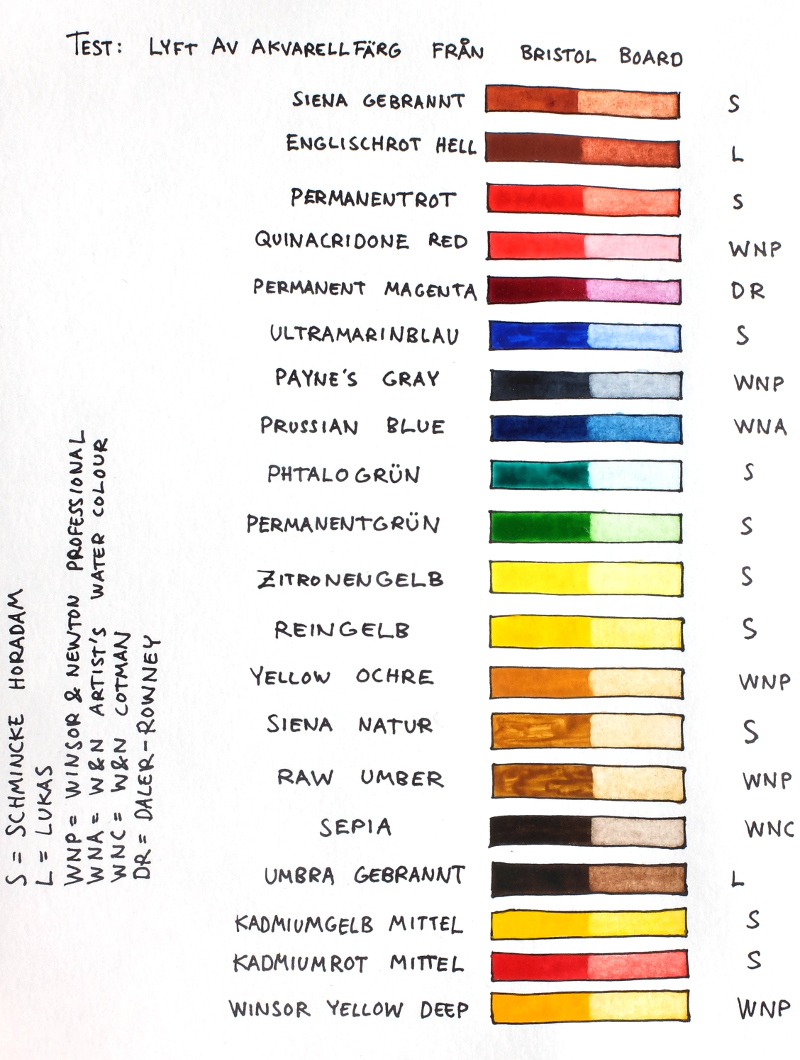 TEST: LYFT AV AKVARELLFÄRG FRÅN BRISTOL BOARD
SIENA GEBRANNT S
ENGLISCHROT HELL L
PERMANENTROT S
QUINACRIDONE RED WNP
PERMANENT MAGENTA DR
ULTRAMARINBLAU S
PAYNE'S GRAY WNP
PRUSSIAN BLUE WNA
PHTALOGRÜN S
PERMANENTGRÜN S
ZITRONENGELB S
REINGELB S
YELLOW OCHRE WNP
SIENA NATUR S
RAW UMBER WNP
SEPIA WNC
UMBRA GEBRANNT L
KADMIUMGELB MITTEL S
KADMIUMROT MITTEL S
WINSOR YELLOW DEEP WNP
S = SCHMINCKE HORADAM
L = LUKAS
WNP = WINSOR & NEWTON PROFESSIONAL
WNA = W&N ARTIST'S WATER COLOUR
WNC = W&N COTMAN
DR = DALER-ROWNEY